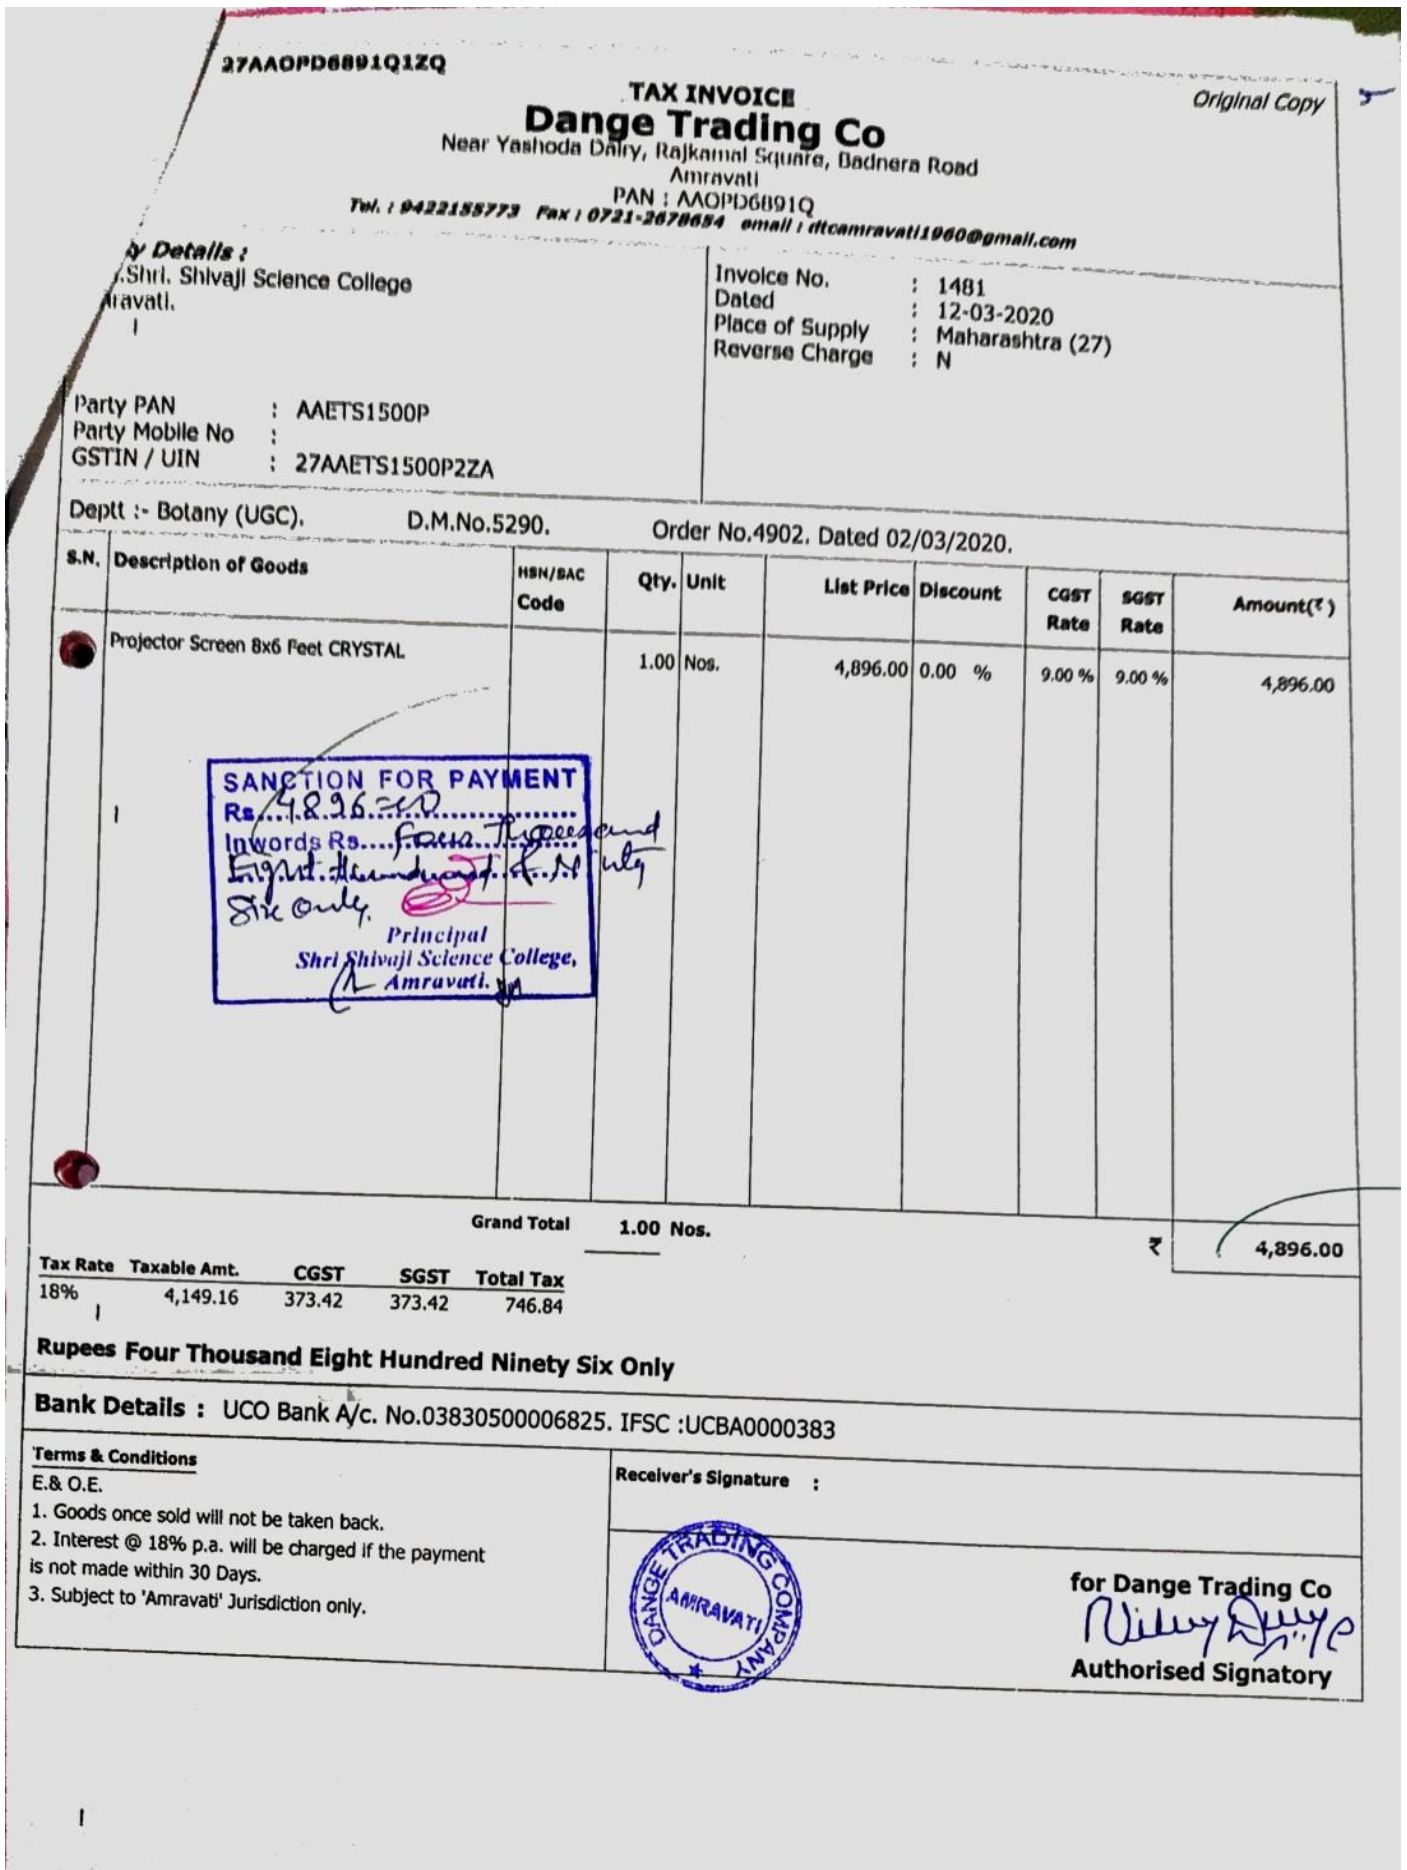 27AAOPD6891Q1ZQ
Original Copy
TAX INVOICE
Dange Trading Co
Near Yashoda Dairy, Rajkamal Square, Badnera Road
Amravati
PAN : AAOPD6891Q
Tel. : 9422155773 Fax : 0721-2678654 email : dtcamravati1960@gmail.com
y Details :
.Shri. Shivaji Science College
ravati.
Invoice No. : 1481
Dated : 12-03-2020
Place of Supply : Maharashtra (27)
Reverse Charge : N
Party PAN : AAETS1500P
Party Mobile No :
GSTIN / UIN : 27AAETS1500P2ZA
Deptt :- Botany (UGC). D.M.No.5290. Order No.4902. Dated 02/03/2020.
S.N. Description of Goods HSN/SAC Code Qty. Unit List Price Discount CGST Rate SGST Rate Amount(₹ )
Projector Screen 8x6 Feet CRYSTAL 1.00 Nos. 4,896.00 0.00 % 9.00 % 9.00 % 4,896.00
SANCTION FOR PAYMENT
Rs....4896=00
Inwords Rs.... Four Thousand
Eight Hundred & Ninty
Six Only.
Principal
Shri Shivaji Science College,
Amravati.
Grand Total 1.00 Nos. ₹ 4,896.00
Tax Rate Taxable Amt. CGST SGST Total Tax
18% 4,149.16 373.42 373.42 746.84
Rupees Four Thousand Eight Hundred Ninety Six Only
Bank Details : UCO Bank A/c. No.03830500006825. IFSC :UCBA0000383
Terms & Conditions
E.& O.E.
1. Goods once sold will not be taken back.
2. Interest @ 18% p.a. will be charged if the payment
is not made within 30 Days.
3. Subject to 'Amravati' Jurisdiction only.
Receiver's Signature :
DANGE TRADING COMPANY
AMRAVATI
for Dange Trading Co
Authorised Signatory